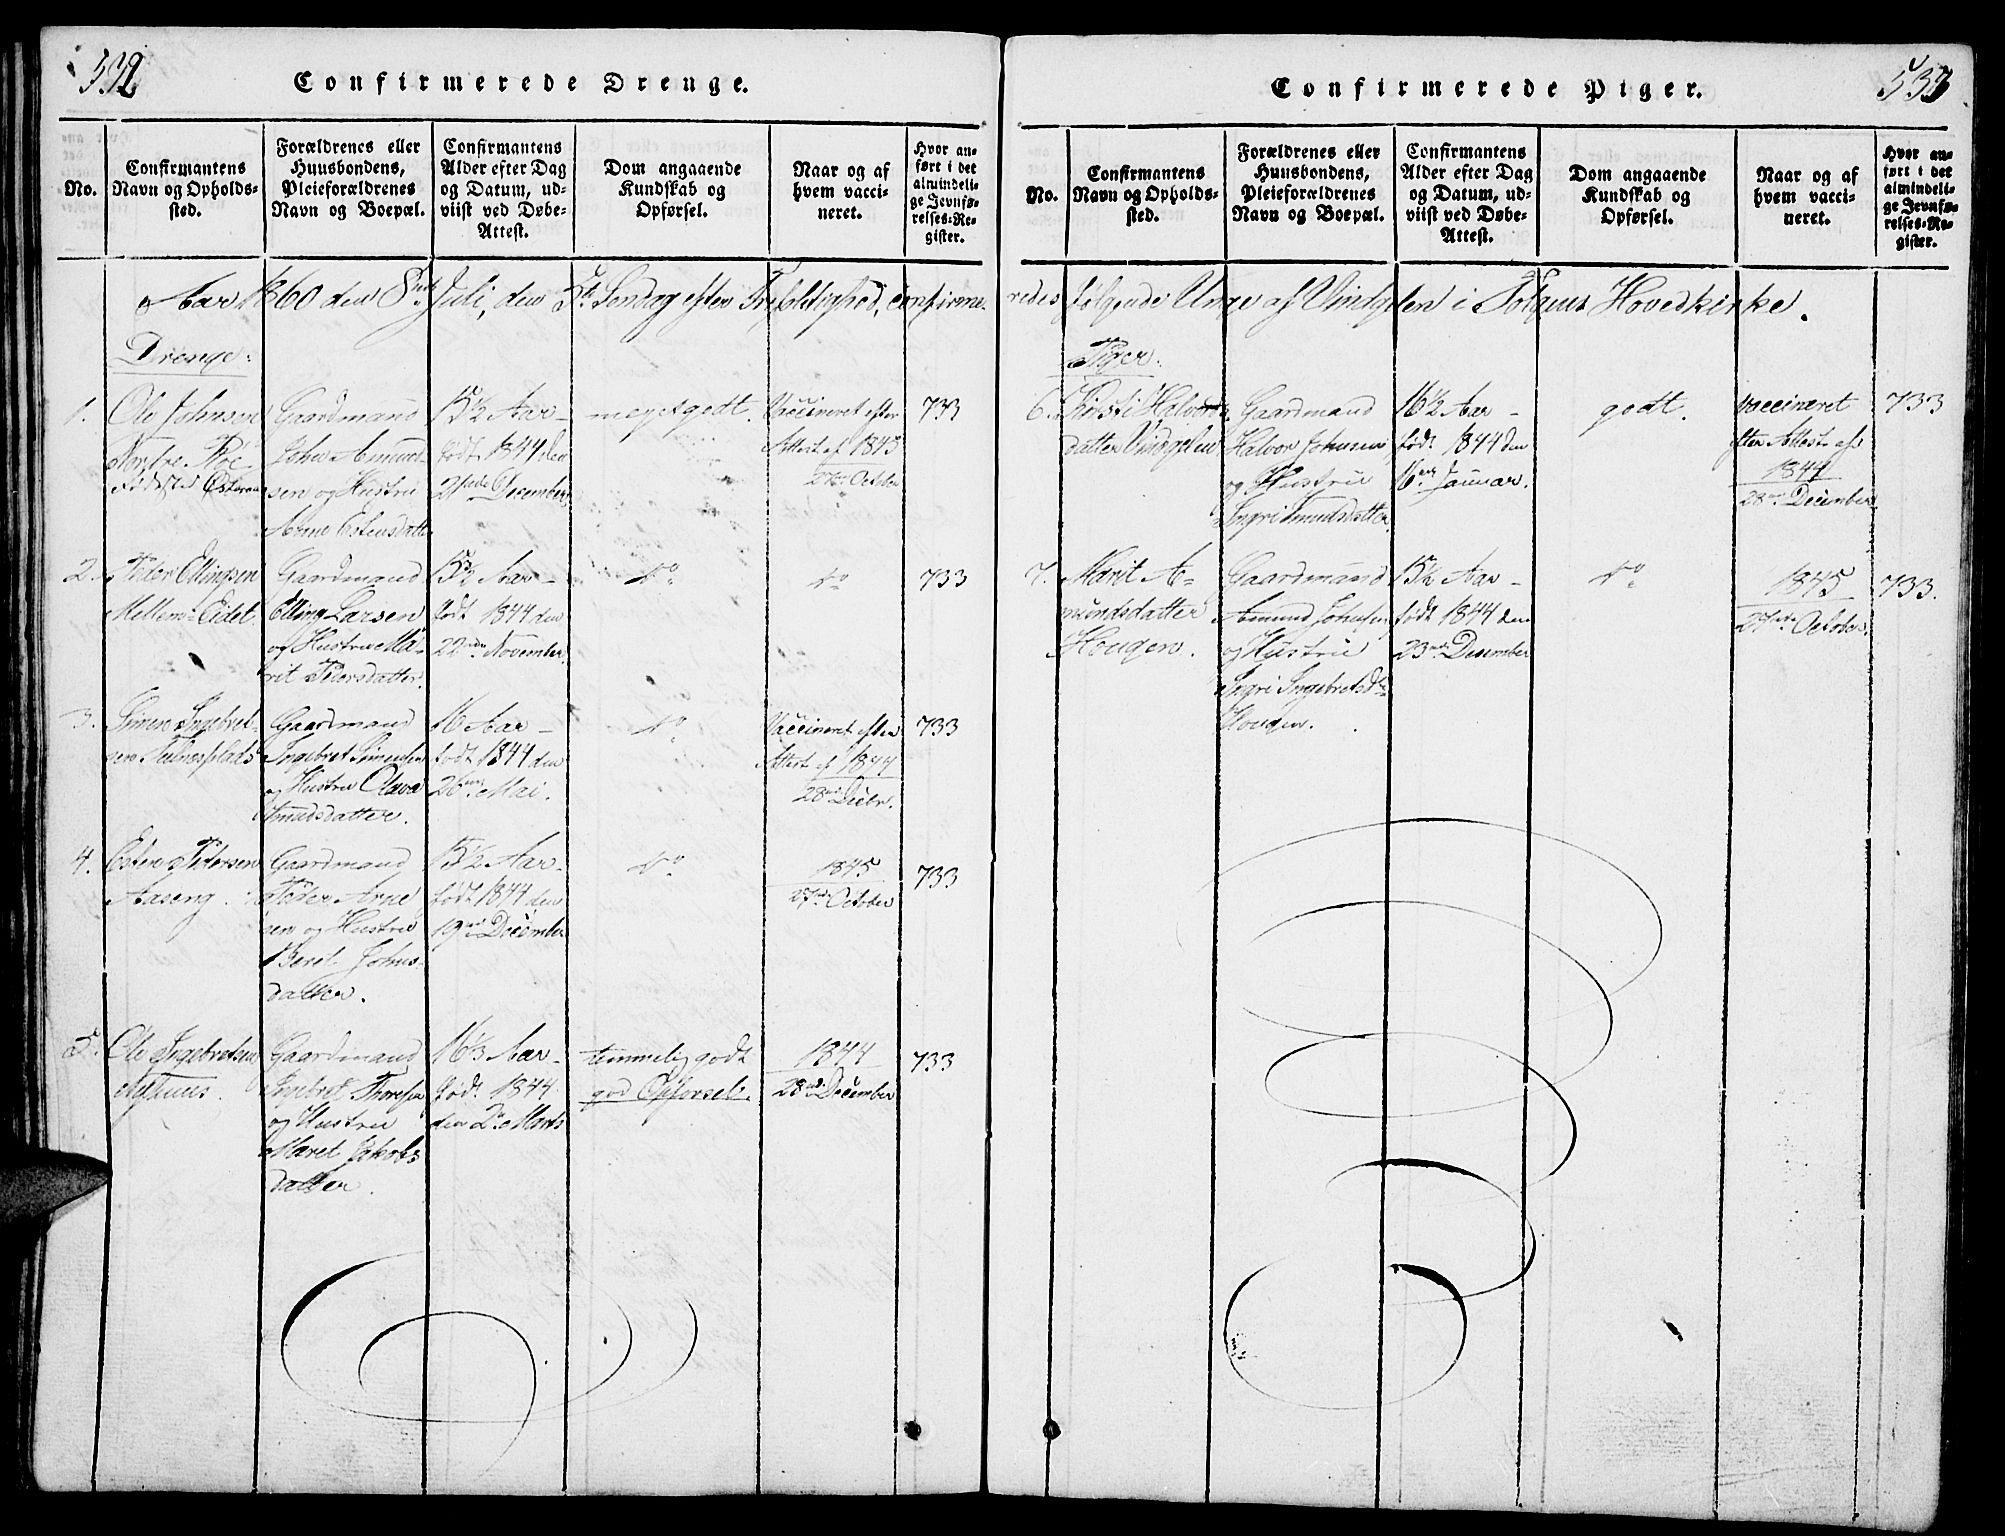 532
Confirmerede Drenge.
No.
Confirmantens Navn og Opholdssted.
Forældrenes eller Huusbondens, Pleieforældrenes Navn og Boepæl.
Confirmantens Alder efter Dag og Datum, udviist ved Døbe-Attest.
Dom angaaende Kundskab og Opførsel.
Naar og af hvem vaccineret.
Hvor anført i det almindelige Jevnførelses-Register.
Aar 1860 den 8de Juli, den 5te Søndag efter Trefoldighed, confirme-
Drenge:
1.
Ole Johnsen
Nordre Roe
Gaardmand
John Amund-
sen og Hustru
Anne Estensdatter
15½ Aar –
født 1844 den
21de December
meget godt.
Vaccineret efter
Attest af 1845
27de October
733
2.
Peder Ellingsen
Mellem-Eidet
Gaardmand
Elling Larsen
og Hustru Ma-
rit Pedersdatter.
15½ Aar –
født 1844 den
22de November.
do
do
733
3.
Simen Ingebret-
sen
Gaardmand
Ingebret Simensen
og Hustru Olava
Amundsdatter.
16 Aar –
født 1844 den
26de Mai.
do
Vaccineret efter
Attest af 1844
28de Decbr.
733
4.
Esten Pedersen
Aaseng.
Gaardmand
Peder Arne
sen og Hustru
Beret Johns-
datter.
15½ Aar –
født 1844 den
19de December
do
1845
27de October
733
5.
Ole Ingebretsen
Gaardmand
Ingebret Thoresen
og Hustru
Maret Jakobs
datter.
16⅓ Aar –
født 1844
den 2de Marts
temmelig godt
god Opførsel.
1844
28de December
733
533
Confirmerede Piger.
No.
Confirmantens Navn og Opholdssted.
Forældrenes eller Huusbondens, Pleieforældrenes Navn og Boepæl.
Confirmantens Alder efter Dag og Datum, udviist ved Døbe-Attest.
Dom angaaende Kundskab og Opførsel.
Naar og af hvem vaccineret.
Hvor anført i det almindelige Jevnførelses-Register.
redes følgende Unge af Vindgelen i Tolgens Hovedkirke.
Piger:
6.
Kirsti Halvors
datter Vindgelen
Gaardmand
Halvor Johnsen
og Hustru
Ingri Amundsdatter.
16½ Aar –
født 1844 den
16de Januar.
godt.
vaccineret
efter Attest af
1844
28de December
733
7.
Marit A-
mundsdatter
Hougen.
Gaardmand
Amund Johnsen
og Hustru
Ingri Ingebretsdtr
Hougen.
15½ Aar –
født 1844 den
23de Desember
do
1845
27de October.
733.